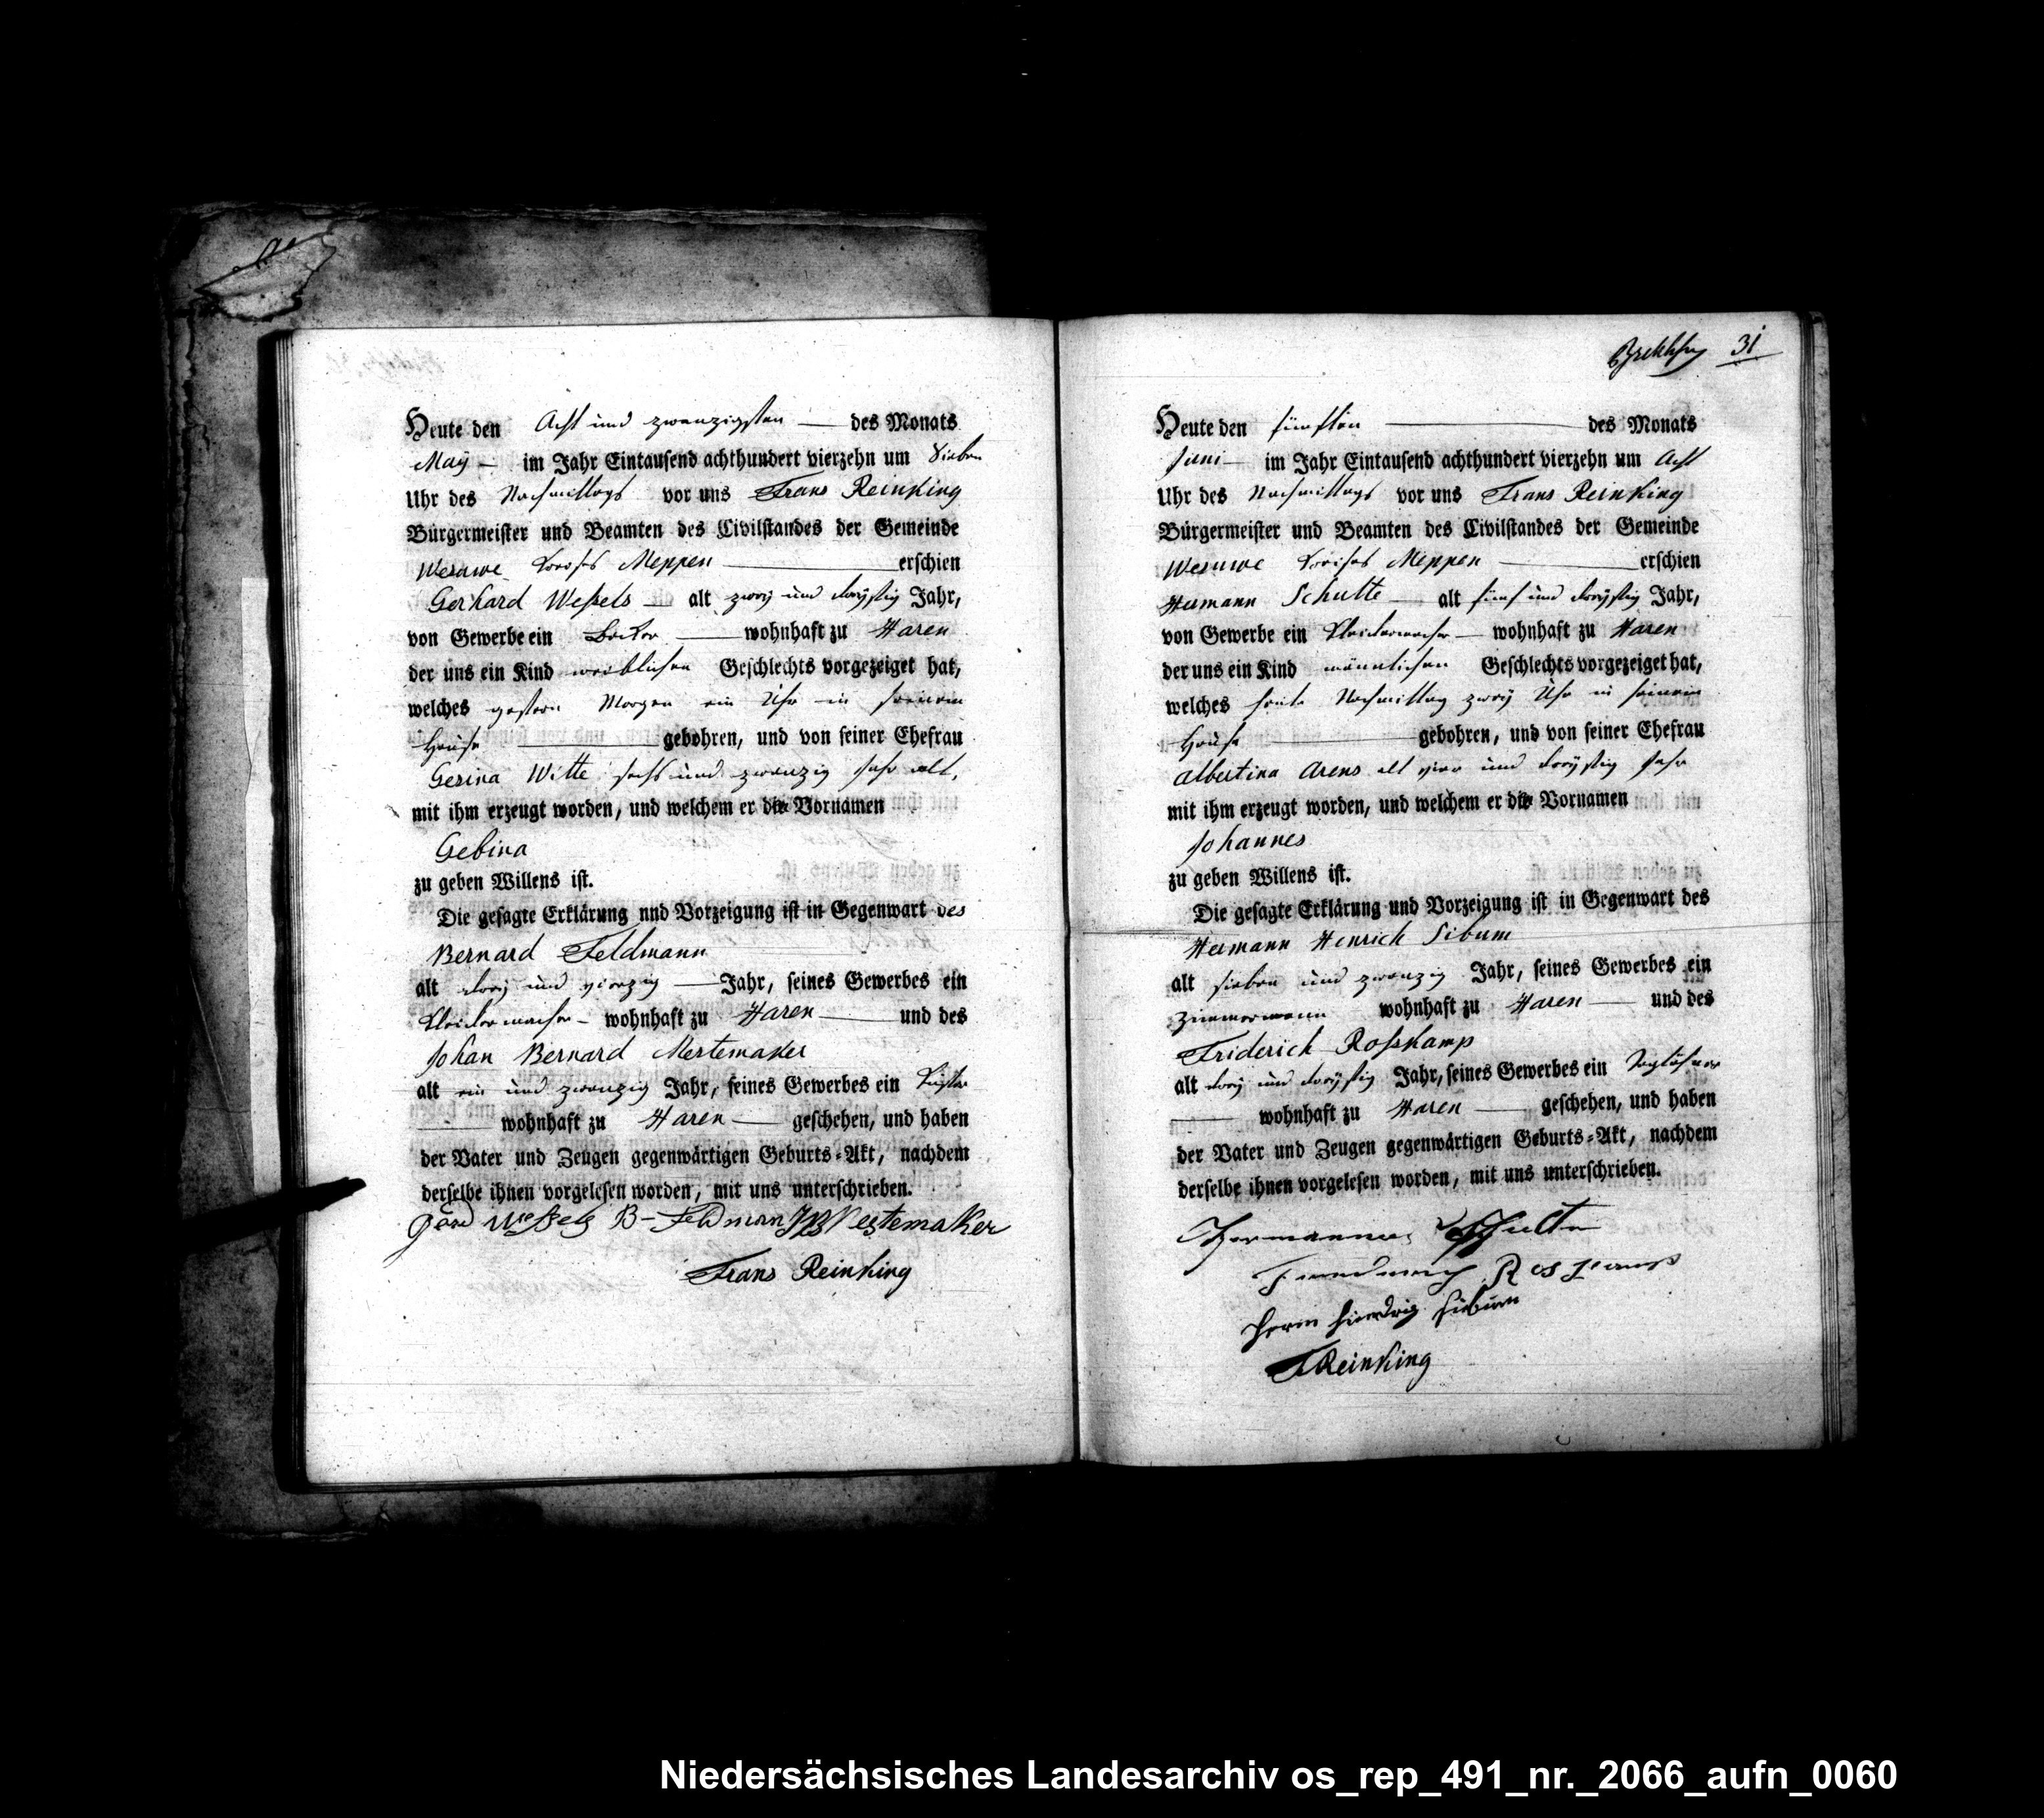 Heute den Acht und zwanzigsten des Monats
May im Jahr Eintausend achthundert vierzehn um Sieben
Uhr des Nachmittags vor uns Frans Reinking
Bürgermeister und Beamten des Civilstandes der Gemeinde
Wesuwe Kreises Meppen erschien
Gerhard Weßels alt zwey und dreyßig Jahr,
von Gewerbe ein Becker wohnhaft zu Haren
der uns ein Kind weiblichen Geschlechts vorgezeiget hat,
welches gestern Morgen ein Uhr in seinem
Hause gebohren, und von seiner Ehefrau
Gesina Witte sechs und zwanzig Jahr alt,
mit ihm erzeugt worden, und welchem er die Vornamen
Gebina
zu geben Willens ist.
Die gesagte Erklärung nnd Vorzeigung ist in Gegenwart des
Bernard Feldmann
alt drey und vierzig Jahr, seines Gewerbes ein
Kleidermacher wohnhaft zu Haren und des
Johan Bernard Mestemaker
alt ein und zwanzig Jahr, seines Gewerbes ein
wohnhaft zu Haren geschehen, und haben
der Vater und Zeugen gegenwärtigen Geburts-Akt, nachdem
derselbe ihnen vorgelesen worden, mit uns unterschrieben.
Gerd Weßels B- Feldman JB Mestemaker
Frans Reinking
31
Heute den fünften des Monats
Juni im Jahr Eintausend achthundert vierzehn um Acht
Uhr des Nachmittags vor uns Frans Reinking
Bürgermeister und Beamten des Civilstandes der Gemeinde
Wesuwe Kreises Meppen erschien
Hermann Schulte alt fünf und dreyßig Jahr,
von Gewerbe ein Kleidermacher wohnhaft zu Haren
der uns ein Kind männlichen Geschlechts vorgezeiget hat,
welches heute Nachmittag zwey Uhr in seinem
Hause gebohren, und von seiner Ehefrau
Albertina Arens alt vier und dreyßig Jahr
mit ihm erzeugt worden, und welchem er die Vornamen
Johannes
zu geben Willens ist.
Die gesagte Erklärung und Vorzeigung ist in Gegenwart des
Hermann Henrich Sibum
alt sieben und zwanzig Jahr, seines Gewerbes ein
Zimmermann wohnhaft zu Haren und des
Friderich Roßkamp
alt drey und dreyßig Jahr, seines Gewerbes ein Taglöhner
wohnhaft zu Haren geschehen, und haben
der Vater und Zeugen gegenwärtigen Geburts-Akt, nachdem
derselbe ihnen vorgelesen worden, mit uns unterschrieben.
Hermannus Schulte
Roskamp
Herm Hindrig Siebum
FReinking
Niedersächsisches Landesarchiv os_rep_491_nr._2066_aufn_0060